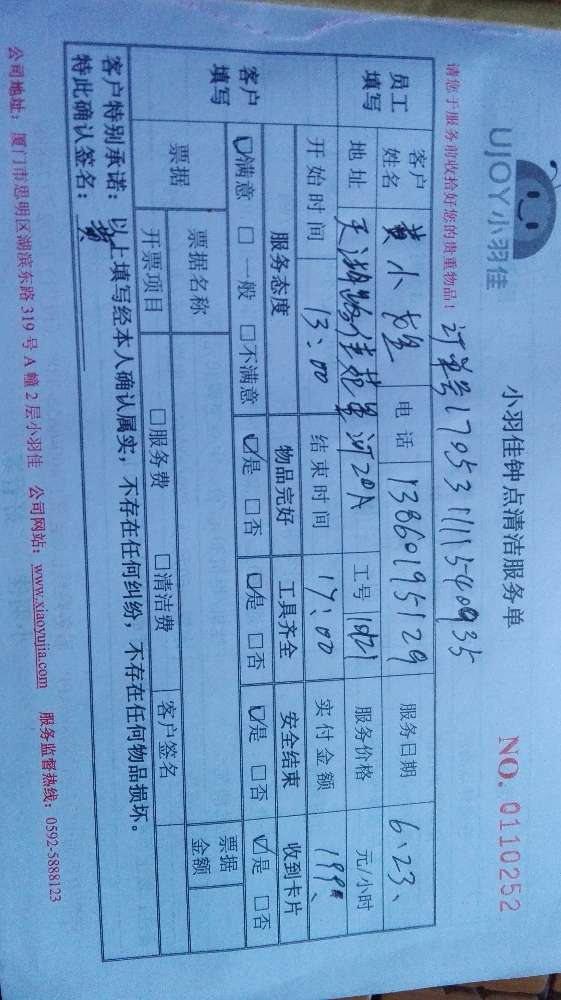 UJOY小羽佳
小羽佳钟点清洁服务单
NO. 0110252
请您于服务前收拾好您的贵重物品!
订单号170531111540935
员工填写 客户姓名 黄小 电话 13860195129 服务日期 6.23、
地址 天湖路佳苑星河20A 工号 服务价格 元/小时
开始时间 13:00 结束时间 17:00 实付金额
客户填写 服务态度 物品完好 工具齐全 安全结束 收到卡片
☑满意 □一般 □不满意 ☑是 □否 ☑是 □否 ☑是 □否 ☑是 □否
票据 票据名称 票据金额
开票项目 □服务费 □清洁费 客户签名
客户特别承诺:以上填写经本人确认属实,不存在任何纠纷,不存在任何物品损坏。
特此确认签名:黄
公司地址:厦门市思明区湖滨东路 319 号 A 幢 2 层小羽佳 公司网站:www.xiaoyujia.com 服务监督热线:0592-5888123